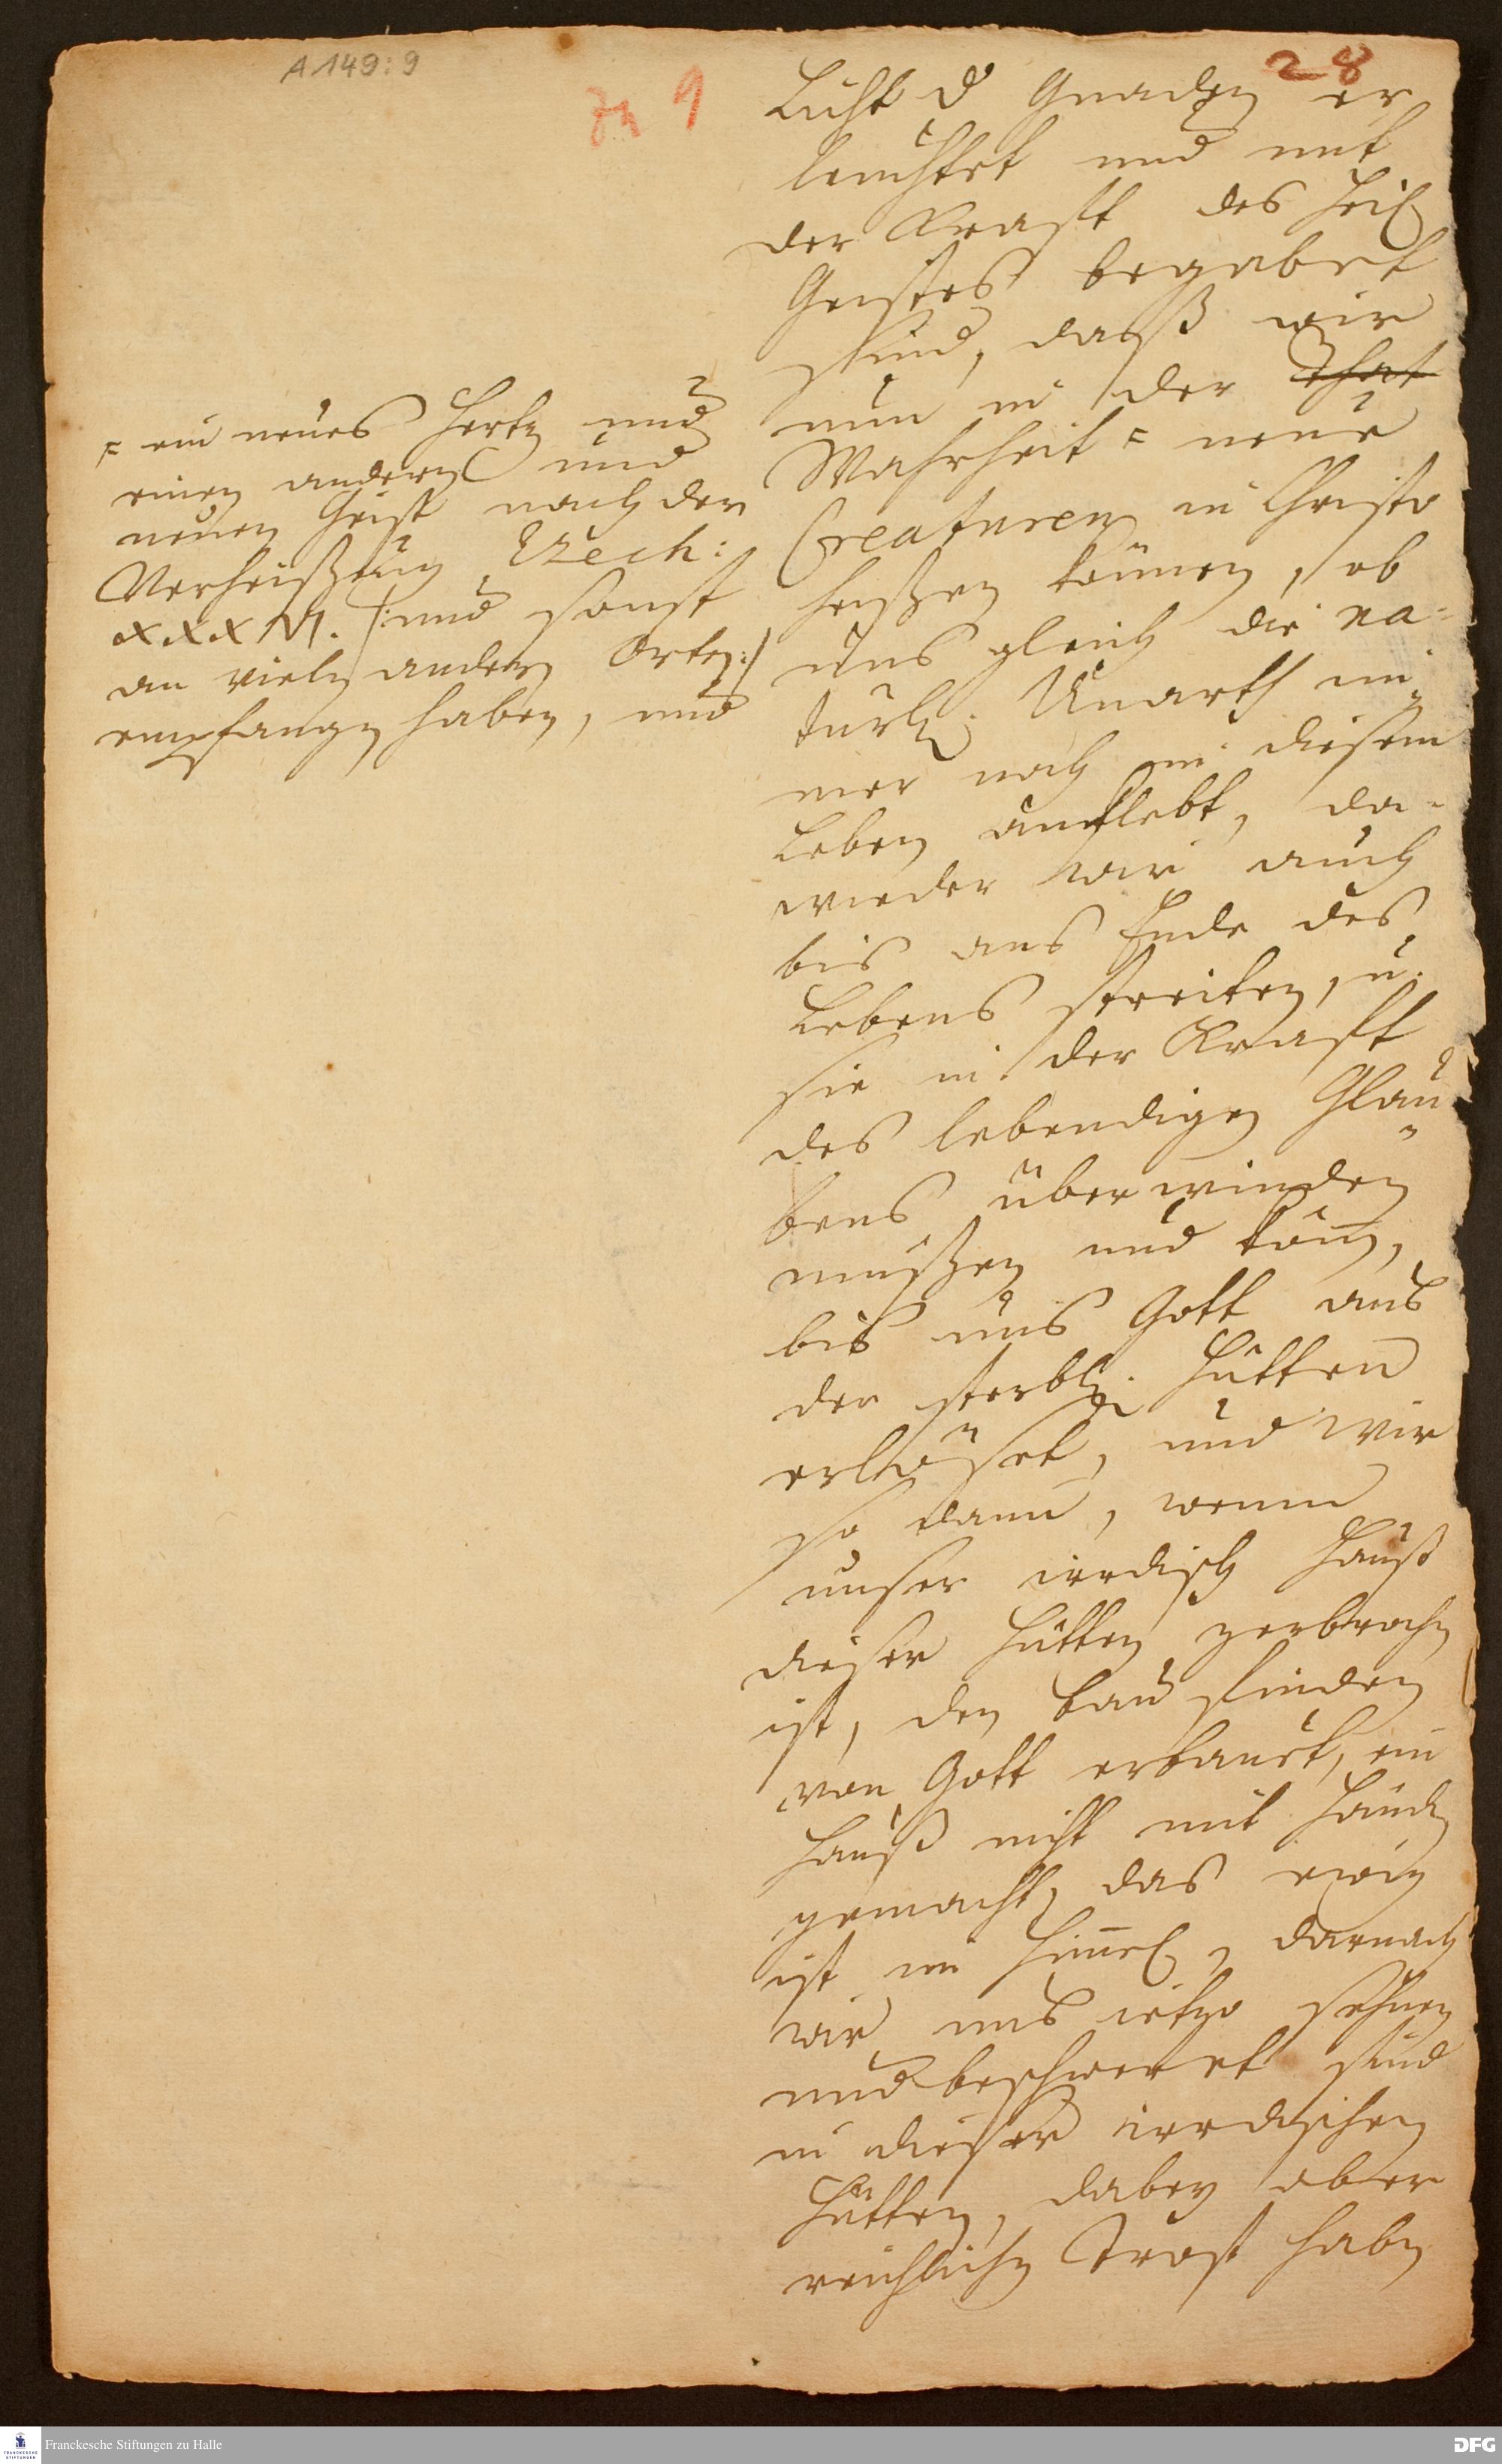 A 149:9
28
zu 9
Licht d Gnaden er
leuchtet und mit
der Krafft des Heil
Geistes begabet
sind, daß wir
nun in der That
Wahrheit = neue
Creaturen in Christo
heißen können, ob
uns gleich die na-
türl. Unarth im
mer noch in diesem
Leben anklebt, da-
wieder wir auch
bis ans Ende des
Lebens streiten, u.
sie in der Krafft
des lebendigen Glau
bens überwinden
müßen und könn,
bis uns Gott aus
der sterbl. Hütten
erlöset, und wir
so dann, wenn
unser irrdisch Hauß
dieser Hütten zerbrochn
ist, den bau finden
von Gott erbauet, ein
Hauß nicht mit Händn
gemacht, das ewig
ist im Himel, darnach
wir uns ietzo sehnen
und beschweret sind
in dieser irrdischen
Hütten, dabey aber
reichlichn Trost habn
= ein neues Hertz und
einen andern und
neuen Geist nach der
Verheißung Ezech:
XXXVI. /: und sonst
an vieln andern Orten :/
empfangn haben, und
Franckesche Stiftungen zu Halle
FRANCKESCHE STIFTUNGEN
DFG